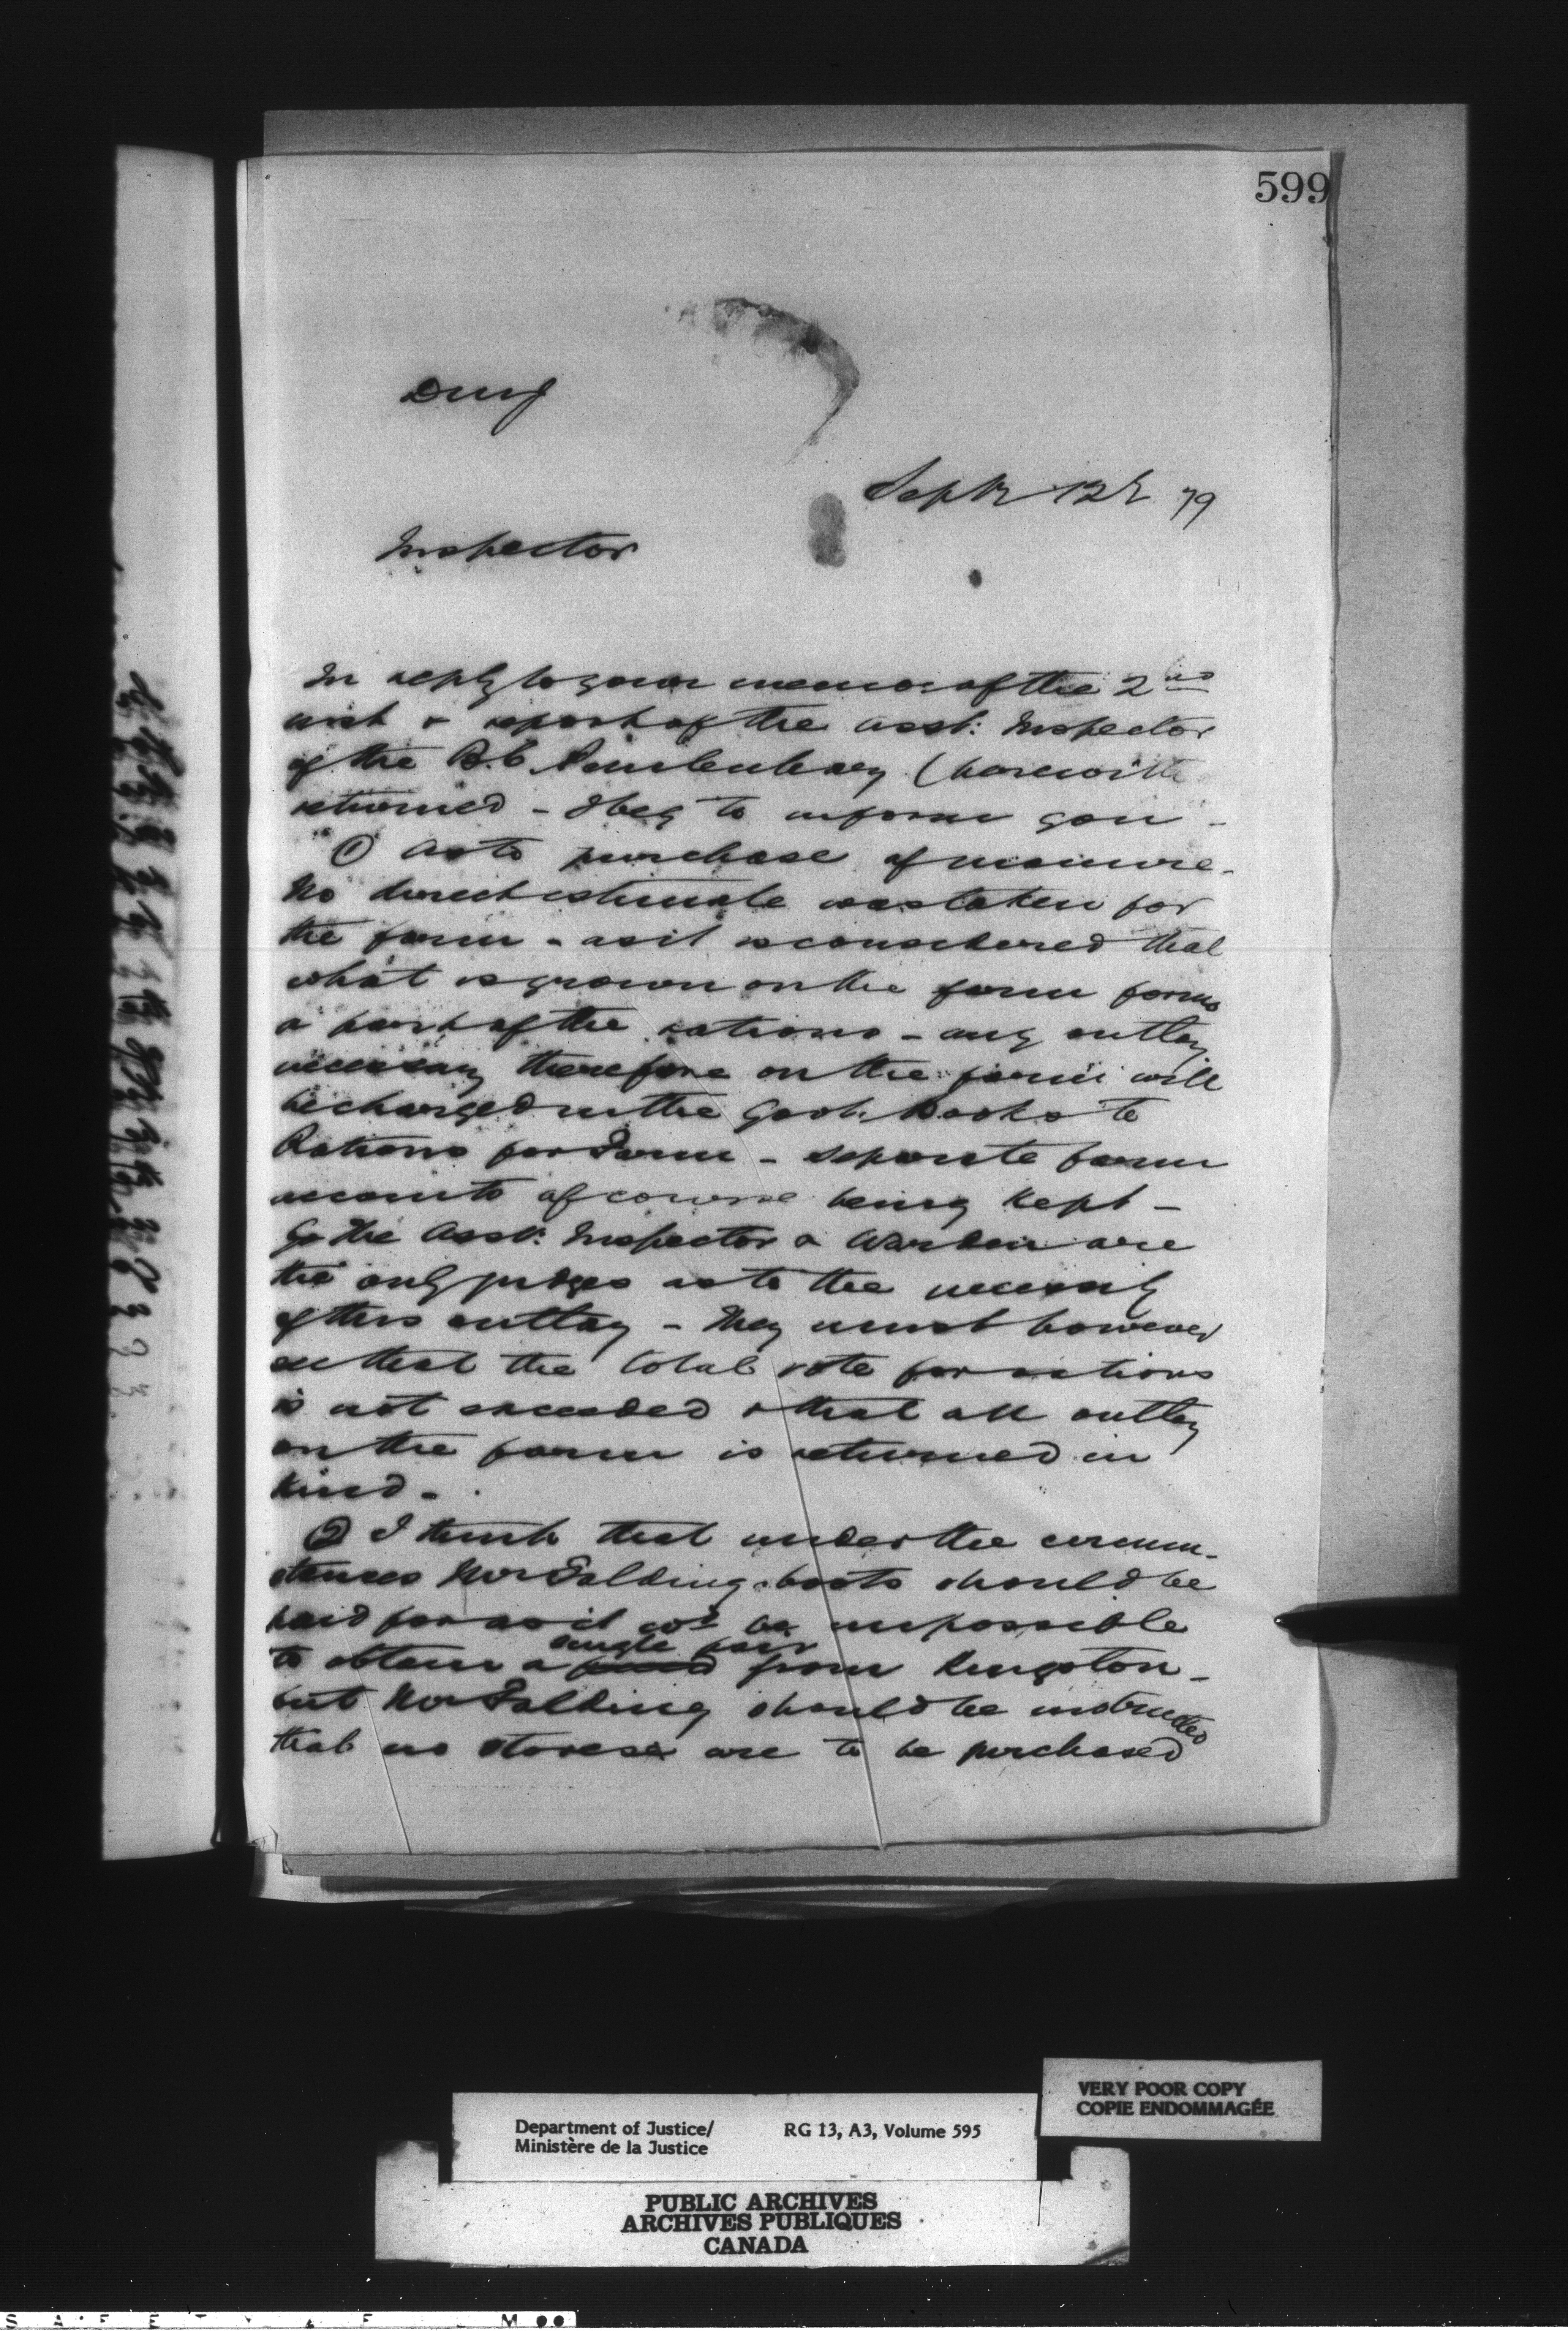 599
Septr 12th 79
Inspector
In reply to your memo of the 2nd
inst & report of the Asst: Inspector
of the B.C. Penitentiary (herewith
returned - I beg to inform you -
① As to purchase of manure -
No direct estimate was taken for
the farm - as it is considered that
what is grown on the farm forms
a part of the rations - any outlay
necessary therefore on the farm will
be charged in the Govt: books to
Rations for Farm - separate farm
accounts of course being kept -
The Asst: Inspector & Warden are
the only judges as to the necessity
of this outlay - they must however
see that the total vote for rations
is not exceeded & that all outlay
on the farm is returned in
kind -
② I think that under the circum-
stances Mr Falding boots should be
paid for as it wd be impossible
single pair
to obtain a from Kingston -
but Mr Falding should be instructed
that no stores are to be purchased
Department of Justice/
Ministère de la Justice
RG 13, A3, Volume 595
VERY POOR COPY
COPIE ENDOMMAGÉE
PUBLIC ARCHIVES
ARCHIVES PUBLIQUES
CANADA